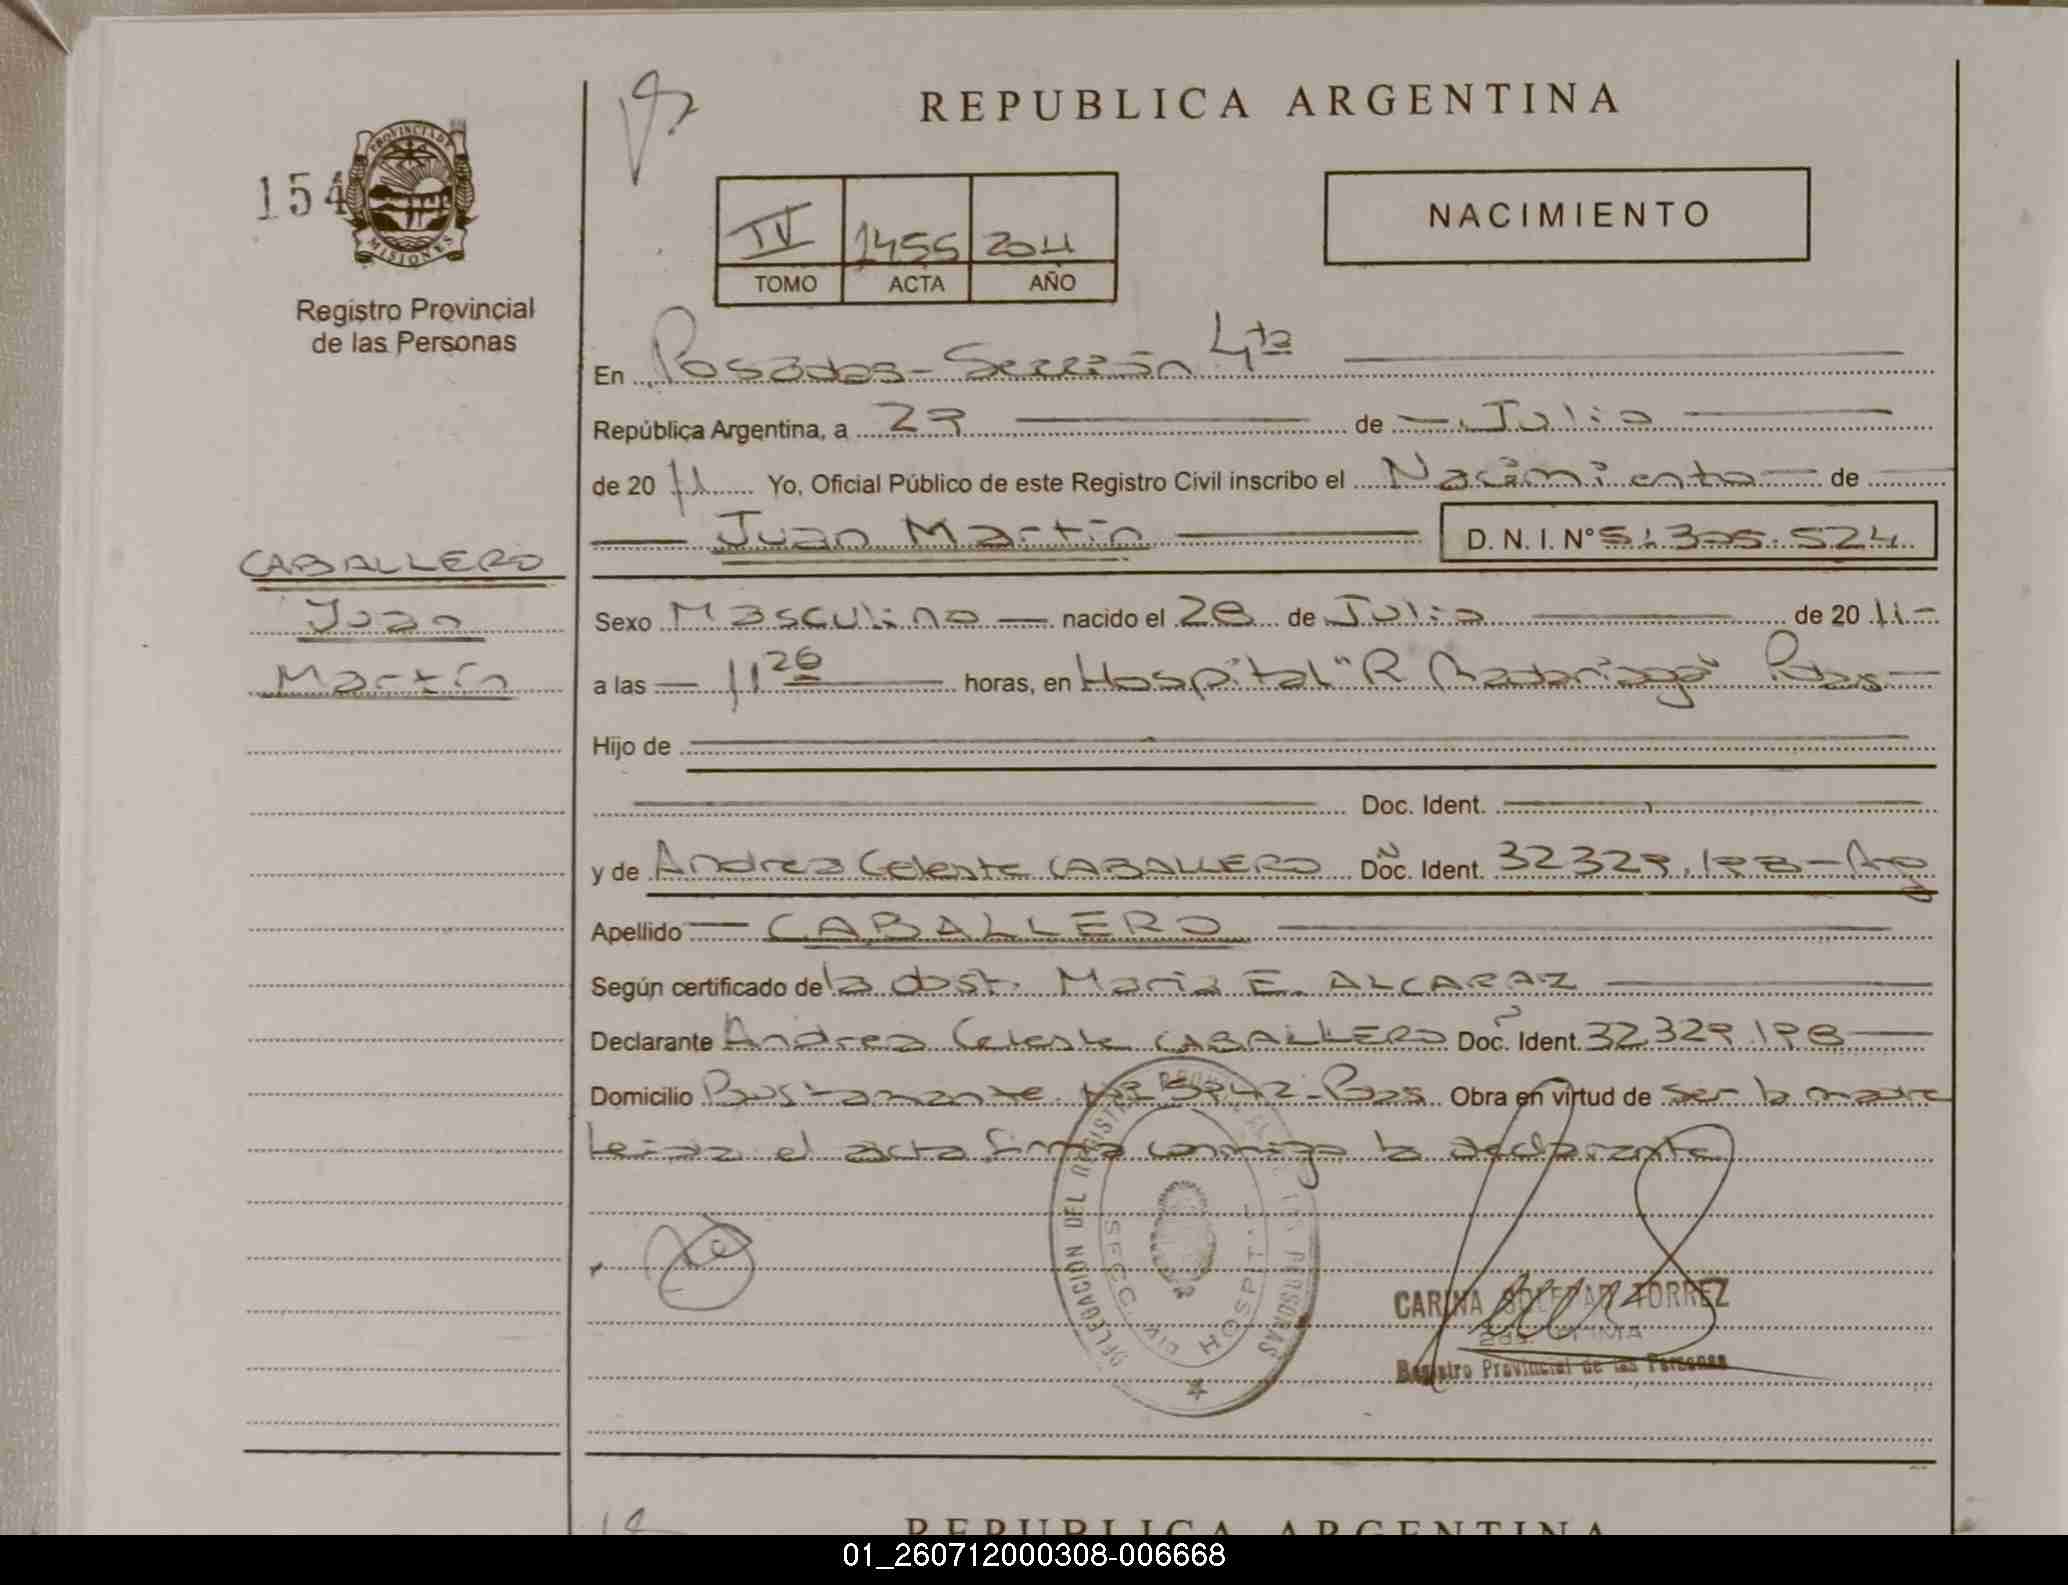 REPUBLICA ARGENTINA
154
PROVINCIA DE
MISIONES
Registro Provincial
de las Personas
NACIMIENTO
IV 1455 2011
TOMO ACTA AÑO
En Posadas - Sección 4ta
República Argentina, a 29 de Julio
de 20 11 Yo, Oficial Público de este Registro Civil inscribo el Nacimiento de
Juan Martín D. N. I. N° 51.305.524
CABALLERO
Juan
Martín
Sexo Masculino nacido el 28 de Julio de 20 11
a las 11 26 horas, en Hospital "R Madariaga" Pdas
Hijo de
Doc. Ident.
y de Andrea Celeste CABALLERO Doc. Ident. 32329.198 - Arg
Apellido CABALLERO
Según certificado de la obst. Maria E. ALCARAZ
Declarante Andrea Celeste CABALLERO Doc. Ident. 32.329.198
Domicilio Bustamante Nº Pdas Obra en virtud de ser la madre
Leida el acta firma conmigo la declarante
DELEGACION DEL REGISTRO DE LAS PERSONAS
SECC. HOSPIT.
CARINA SOLEDAD TORREZ
Registro Provincial de las Personas
REPUBLICA ARGENTINA
01_260712000308-006668